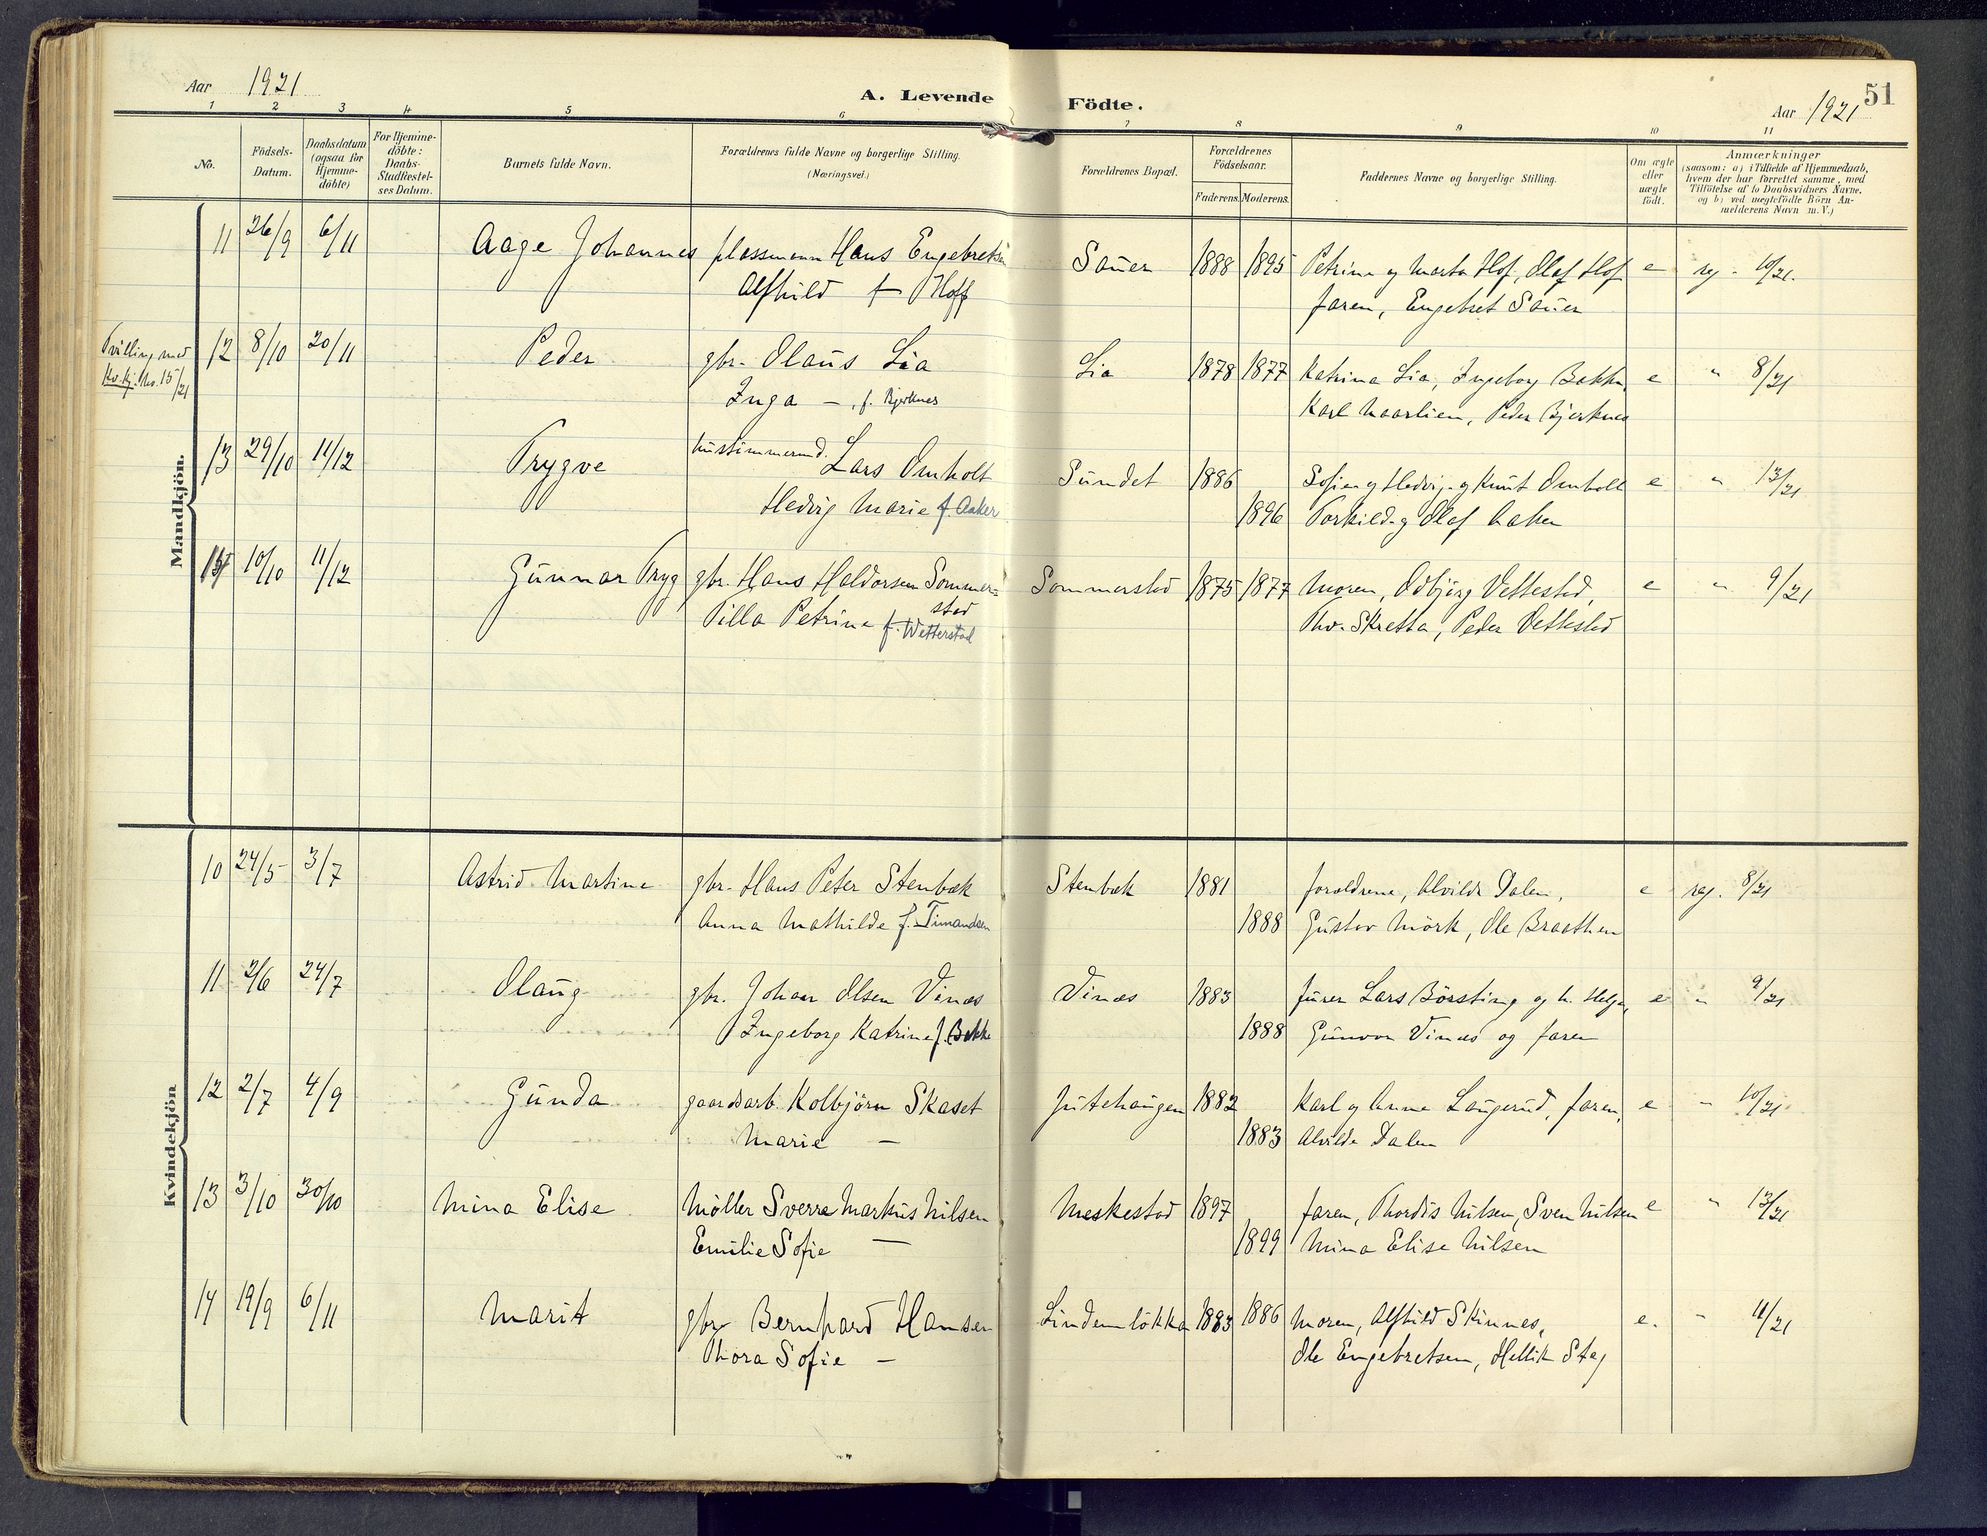 Aar 1921
A. Levende Födte.
Aar 1921
51
1 2 3 4 5 6 7 8 9 10 11
No.
Födsels-Datum.
Daabsdatum (ogsaa for Hjemme-döbte)
For Hjemme-döbte: Daabs-Stadfæstel-ses Datum.
Barnets fulde Navn.
Forældrenes fulde Navne og borgerlige Stilling.
(Næringsvei.)
Forældrenes Bopæl.
Forældrenes Födselsaar.
Faderens. Moderens.
Faddernes Navne og borgerlige Stilling.
Om ægte eller uægte födt.
Anmærkninger
(saasom: a) i Tilfælde af Hjemmedaab, hvem der har forrettet samme, med Tilföielse af to Daabsvidners Navne, og b) ved uægtefödte Börn An-melderens Navn m. V.)
Mandkjön.
11 26/9 6/11 Aage Johannes plassmann Hans Engebretsen Sauer 1888 1895 Petrine og Marta Hof, Olaf Hof e reg. 10/21.
Alfhild f Hoff faren, Engebret Sauer
Tvilling med
Kv.kj. No. 15/21
12 8/10 20/11 Peder gbr. Olaus Lia Lia 1878 1877 Katrina Lia, Ingeborg Bakke, e " 8/21
Inga —, f. Bjerknes Karl Haarlien, Peder Bjerknes
13 29/10 11/12 Trygve hustimmermd. Lars Omholt Sundet 1886 Sofie og Hedvig og Knut Omholt e " 13/21
Hedvig Marie f. Aaker 1896 Torkild og Olaf Aaker
10/10 11/12 Gunnar Tryg gbr. Hans Haldorsen Sommer=stad Sommerstad 1875 1877 Moren, Odbjørg Vettestad, e " 9/21
Tilla Petrine f. Wetterstad Thv. Skretta, Peder Vettestad
Kvindekjön
10 24/5 3/7 Astrid Martine gbr. Hans Peter Stenbæk Stenbæk 1881 foreldrene, Alvilde Dalen, e reg. 8/21
Anna Mathilde f. Timandsen 1888 Gustav Mörk, Ole Braathen
11 2/6 24/7 Olaug gbr. Johan Olsen Vinæs Vinæs 1883 furer Lars Börsting og h. Helga, e " 9/21
Ingeborg Katrine f. Bakke 1888 Gunvor Vinæs og faren
12 2/7 4/9 Gunda gaardsarb. Kolbjörn Skaset Jutehaugen 1882 Karl og Anne Laugerud, faren, e " 10/21
Marie — 1883 Alvilde Dalen
13 3/10 30/10 Mina Elise Møller Sverre Markus Nilsen Meskestad 1897 faren, Thordis Nilsen, Sven Nilsen e " 13/21
Emilie Sofie — 1899 Mina Elise Nilsen
14 19/9 6/11 Marit gbr Bernhard Hansen Lindemløkka 1883 1886 Moren, Alfhild Skinnes, e. " 11/21
Thora Sofie — Ole Engebretsen, Hellik Steg